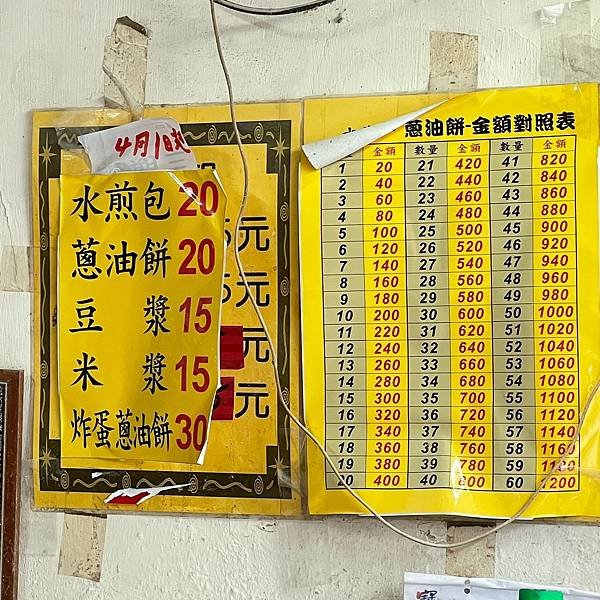 4月1日起
水煎包20
蔥油餅20
豆漿15
米漿15
炸蛋蔥油餅30
5元
5元
元
元
蔥油餅-金額對照表
金額 數量 金額 數量 金額
1 20 21 420 41 820
2 40 22 440 42 840
3 60 23 460 43 860
4 80 24 480 44 880
5 100 25 500 45 900
6 120 26 520 46 920
7 140 27 540 47 940
8 160 28 560 48 960
9 180 29 580 49 980
10 200 30 600 50 1000
11 220 31 620 51 1020
12 240 32 640 52 1040
13 260 33 660 53 1060
14 280 34 680 54 1080
15 300 35 700 55 1100
16 320 36 720 56 1120
17 340 37 740 57 1140
18 360 38 760 58 1160
19 380 39 780 59 1180
20 400 40 800 60 1200